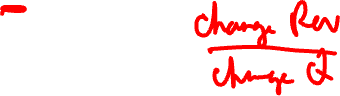 change Rev
change Q